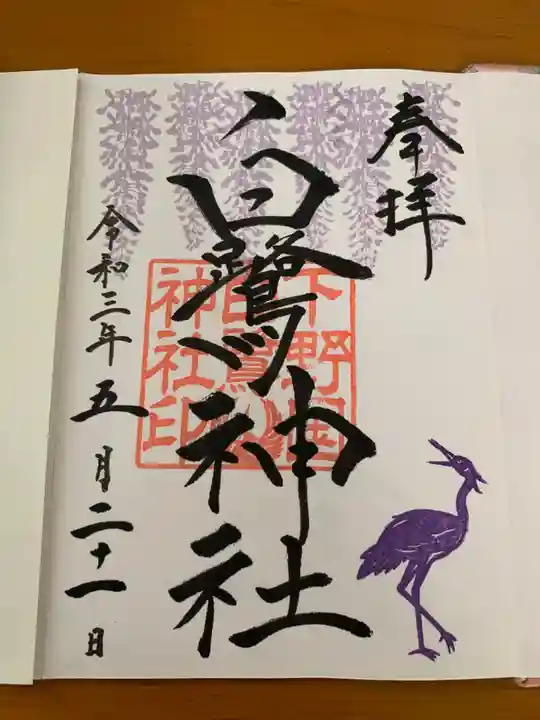 奉拝
白鷺神社
下野国
白鷺
神社印
令和三年五月二十一日